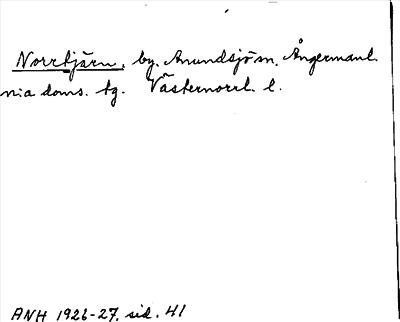 Norrtjärn, by. Anundsjö sn. Ångermanl.
n:a doms. tg. Västernorrl. l.
ANH 1926-27. sid. 41